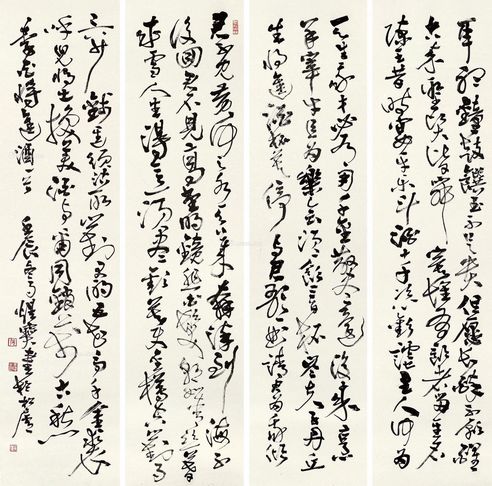 君不見黃河之水天上來奔流到海不
復回君不見高堂明鏡悲白髮朝如青絲暮
成雪人生得意須盡歡莫使金樽空對月
天生我才必有用千金散盡還復來烹
羊宰牛且為樂會須一飲三百杯岑夫子丹丘
生將進酒杯莫停與君歌一曲請君為我傾
耳聽鐘鼓饌玉不足貴但願長醉不願醒
古來聖賢皆寂寞惟有飲者留其名
陳王昔時宴平樂斗酒十千恣歡謔主人何為
言少錢徑須沽取對君酌五花馬千金裘
呼兒將出換美酒與爾同銷萬古愁
李白將進酒一首 壬辰